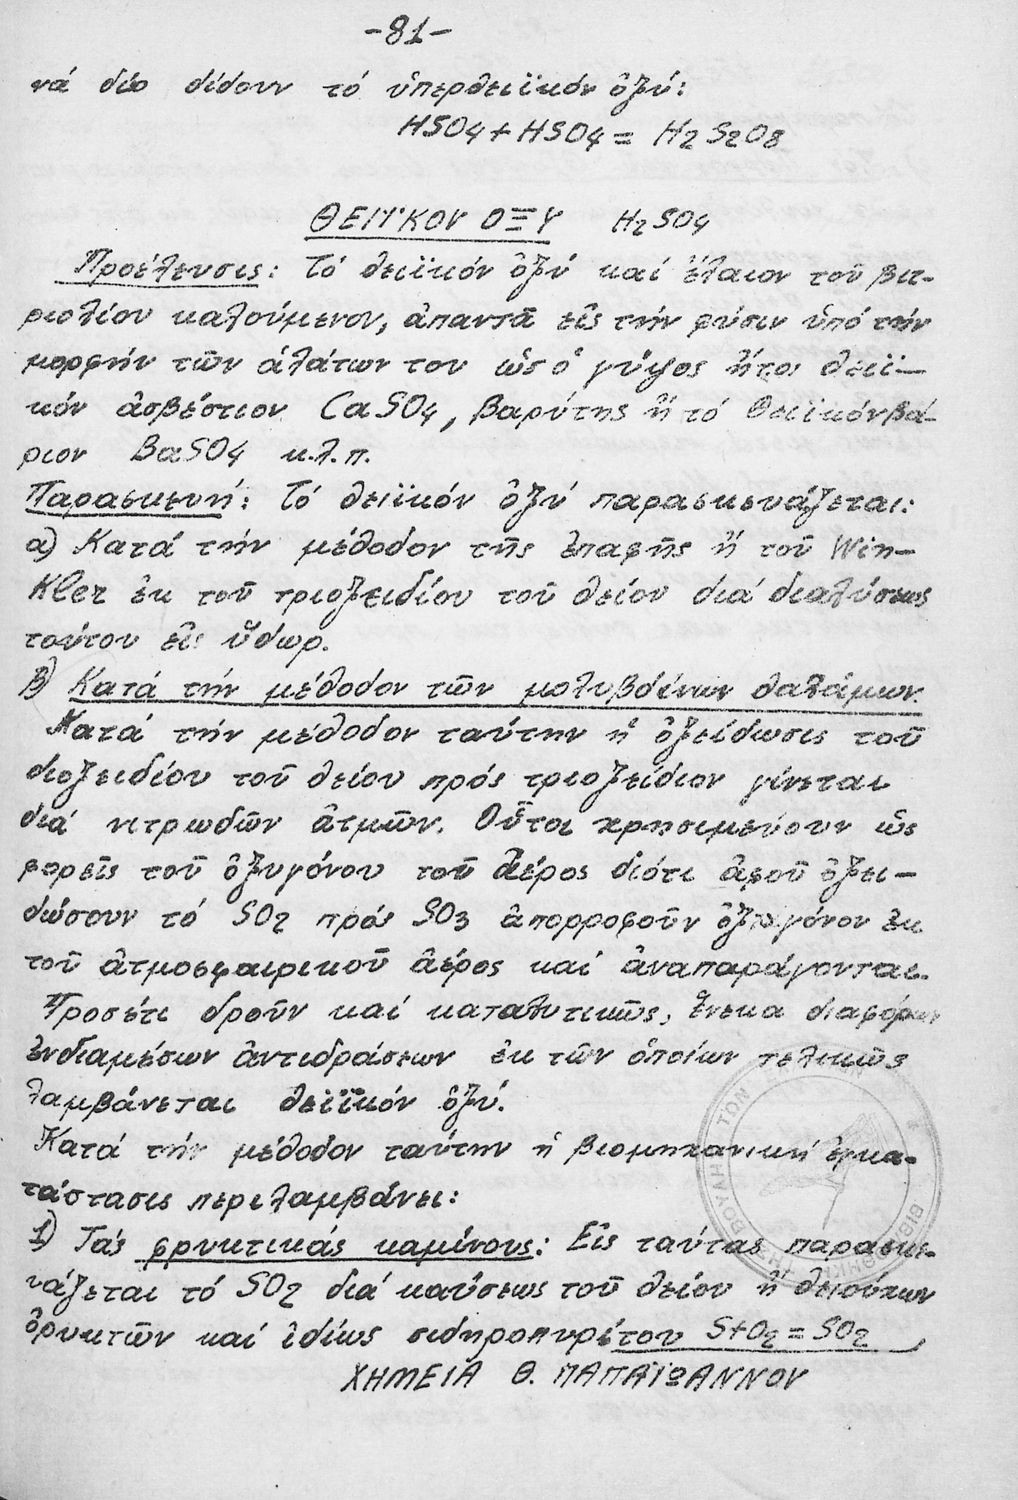 -81-
νά δύο δίδουν τό ὑπερθειϊκόν ὀξύ:
HSO4 + HSO4 = H2S2O8
ΘΕΙΪΚΟΝ ΟΞΥ H2SO4
Προέλευσις: Τό θειϊκόν ὀξύ καί ἔλαιον τοῦ βιτ-
ριολίου καλούμενον, ἀπαντᾶ εἰς τήν φύσιν ὑπό τήν
μορφήν τῶν ἁλάτων του ὡς ὁ γύψος ἤτοι θειϊ-
κόν ἀσβέστιον CaSO4, βαρύτης ἤ τό θειϊκόν βά-
ριον BaSO4 κ.λ.π.
Παρασκευή: Τό θειϊκόν ὀξύ παρασκευάζεται:
α) Κατά τήν μέθοδον τῆς ἐπαφῆς ἤ τοῦ Win-
Kler ἐκ τοῦ τριοξειδίου τοῦ θείου διά διαλύσεως
τούτου εἰς ὕδωρ.
β) Κατά τήν μέθοδον τῶν μολυβδίνων θαλάμων.
Κατά τήν μέθοδον ταύτην ἡ ὀξείδωσις τοῦ
διοξειδίου τοῦ θείου πρός τριοξείδιον γίνεται
διά νιτρωδῶν ἀτμῶν. Οὗτοι χρησιμεύουν ὡς
φορεῖς τοῦ ὀξυγόνου τοῦ ἀέρος διότι ἀφοῦ ὀξει-
δώσουν τό SO2 πρός SO3 ἀπορροφοῦν ὀξυγόνον ἐκ
τοῦ ἀτμοσφαιρικοῦ ἀέρος καί ἀναπαράγονται.
Προσέτι δροῦν καί καταλυτικῶς, ἕνεκα διαφόρων
ἐνδιαμέσων ἀντιδράσεων ἐκ τῶν ὁποίων τελικῶς
λαμβάνεται θειϊκόν ὀξύ.
Κατά τήν μέθοδον ταύτην ἡ βιομηχανική ἐγκα-
τάστασις περιλαμβάνει:
1) Τάς φρυκτικάς καμίνους: Εἰς ταύτας παρασκευ-
άζεται τό SO2 διά καύσεως τοῦ θείου ἤ θειούχων
ὀρυκτῶν καί ἰδίως σιδηροπυρίτου S+O2=SO2,
ΧΗΜΕΙΑ Θ. ΠΑΠΑΪΩΑΝΝΟΥ
ΒΟΥΛΗ ΤΩΝ